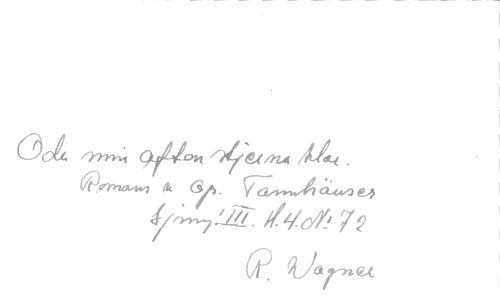 O du min aftonstjerna klar.
Romans u op. Tannhäuser
Sjung! III. H.4. № 72
R. Wagner